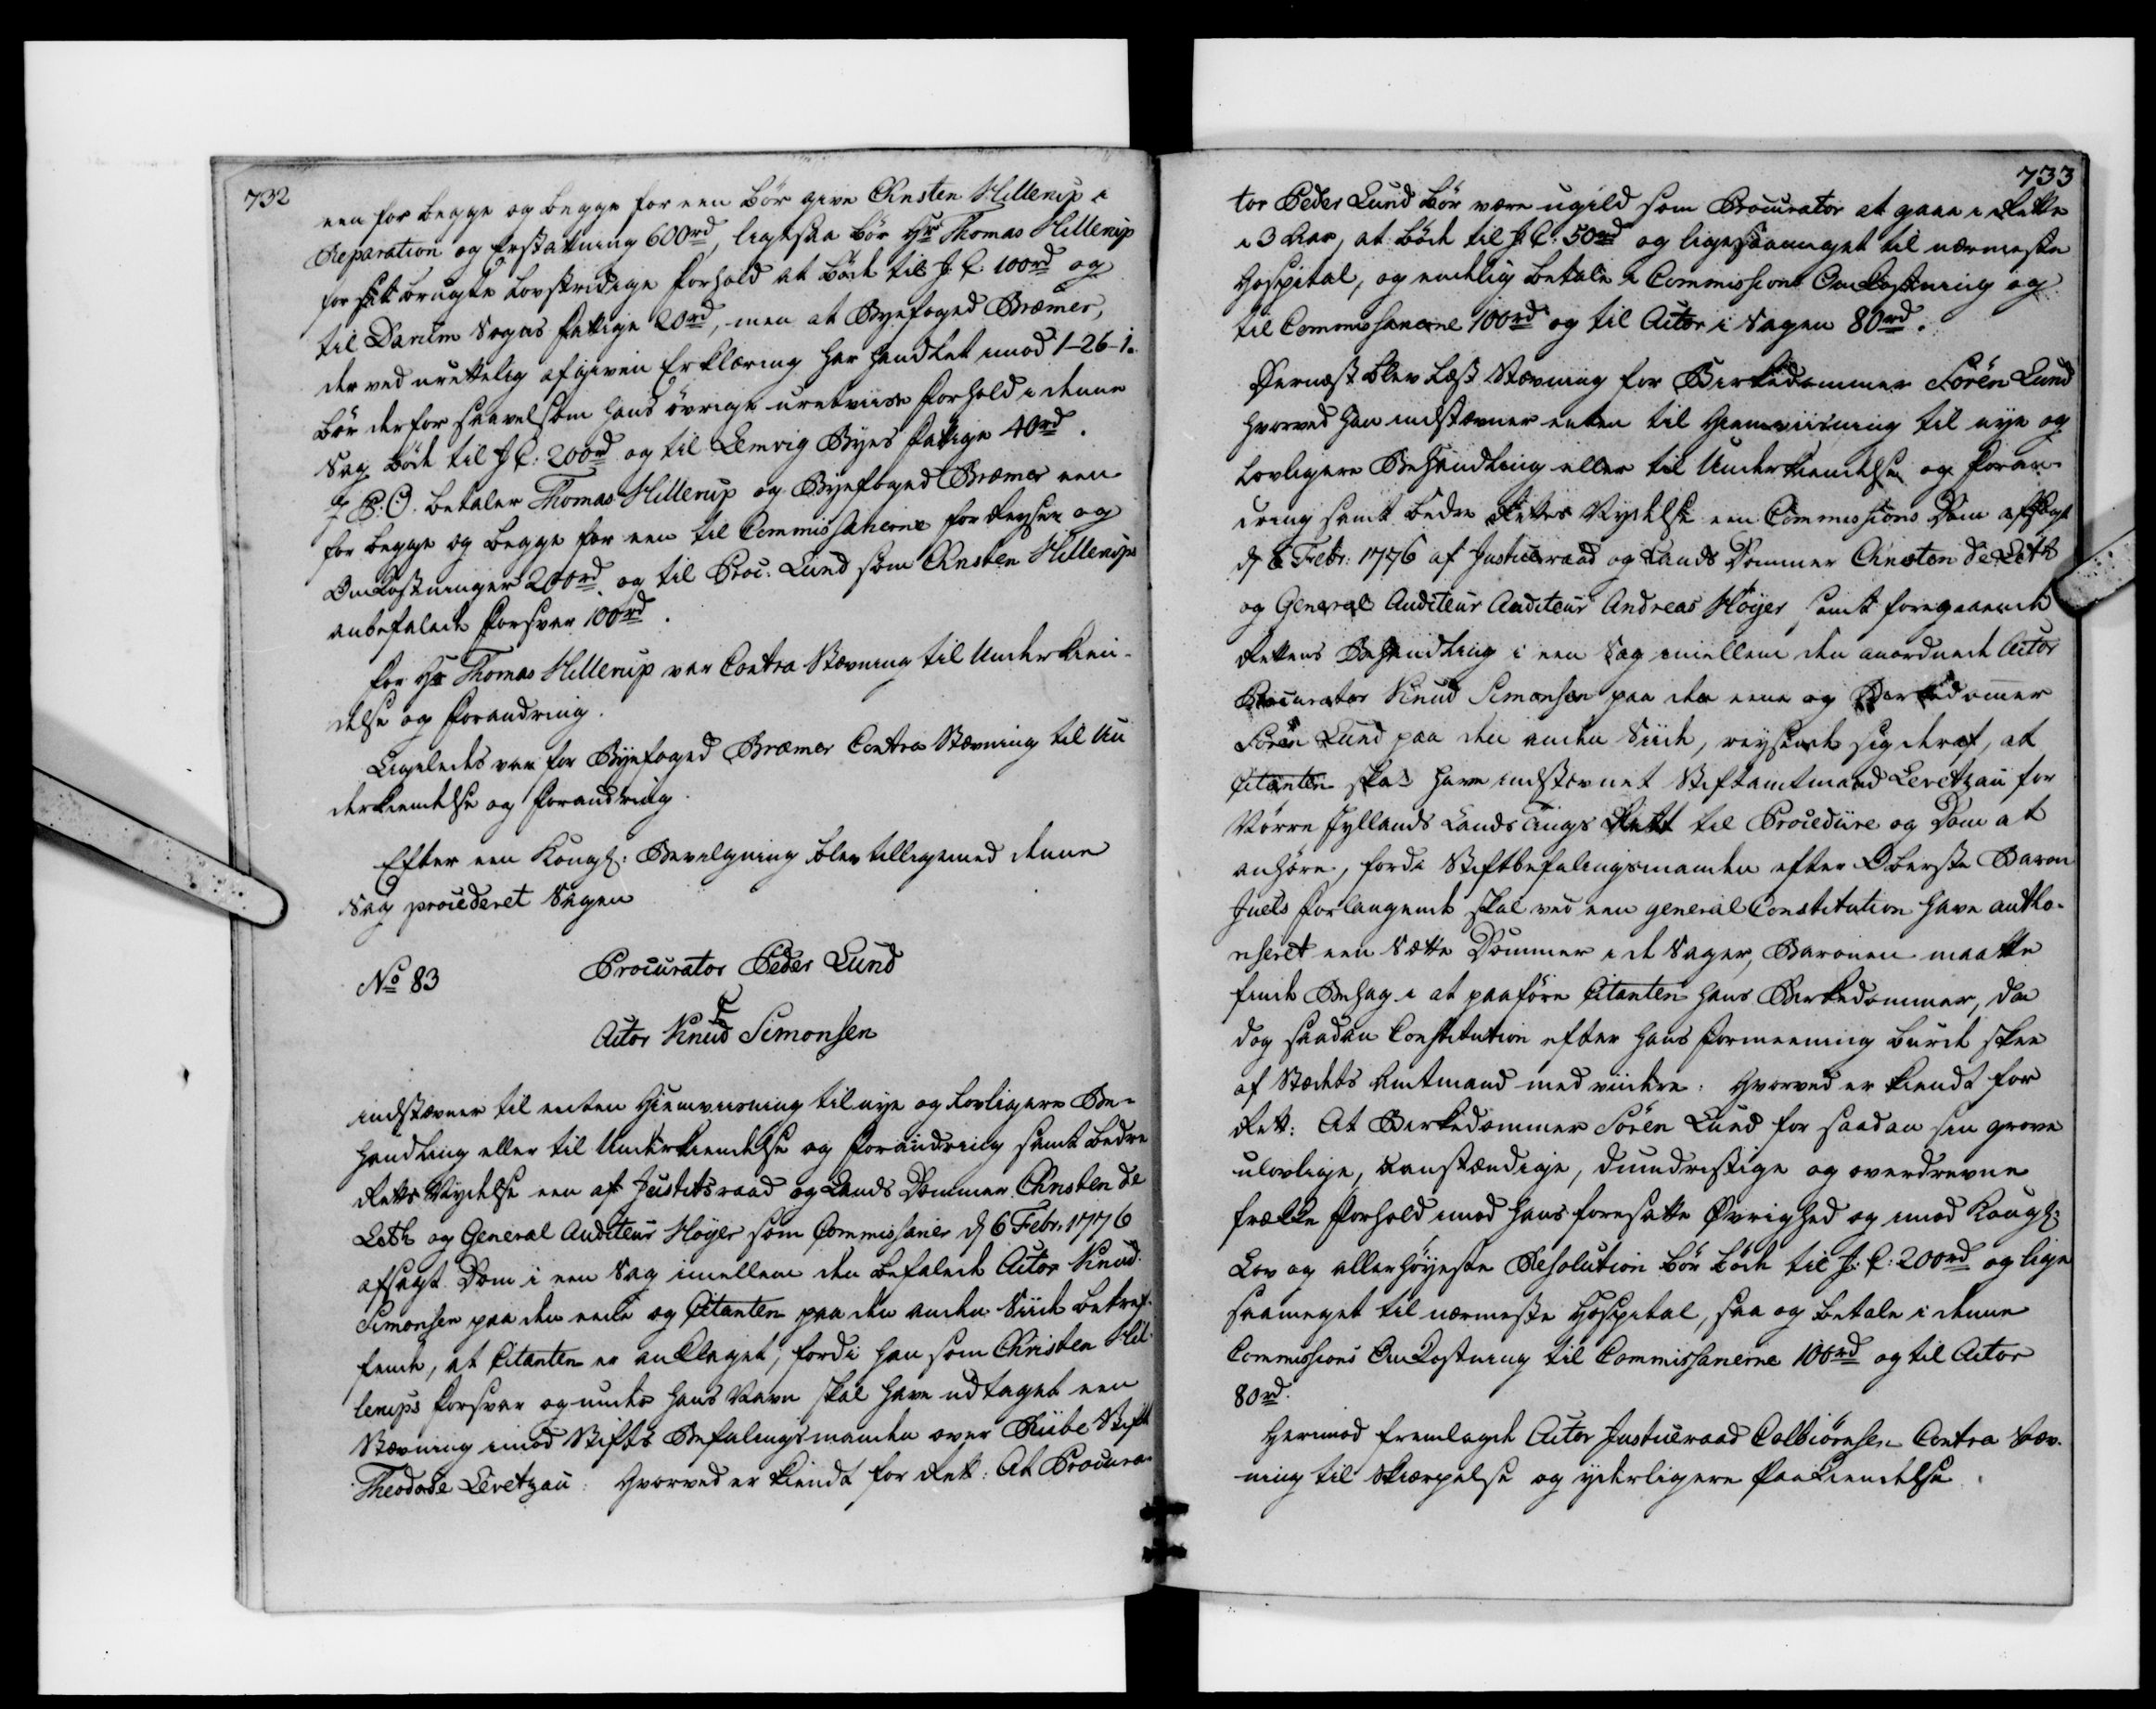 732
een for begge og begge for een bör give Christen Hillerup i
Reparation og Erstatning 600rd, ligesaa bör Hr Thomas Hillerup
for sit brugte Lovstridige Forhold at böde til J. C. 100rd og
til Danum Sogns Fattige 20rd, men at Byefoged Bræmer,
der ved urettelig afgiven Erklæring har handlet imod 1-26-1.
bör derfor saavelsom hans övrige uretviise Forhold i denne
Sag böde til J. C. 200rd og til Lemvig Byes Fattige 40rd.
I P. O. betaler Thomas Hillerup og Byefoged Bræmer een
for begge og begge for een til Commissairerne for Reyser og
Omkostninger 200rd og til Proc. Lund som Christen Hillerups
anbefalede Forsvar 100rd.
For Hr Thomas Hillerup var Contra Stævning til Underkien-
delse og Forandring.
Ligeledes var for Byefoged Bræmer Contra Stævning til Un
derkiendelse og Forandring.
Efter een Kongl: Bevilgning blev tilligemed denne
Sag procederet Sagen
No 83
Procurator Peder Lund
C
Actor Knud Simonsen
indstævner til enten Hiemviisning til nye og lovligere Be-
handling eller til Underkiendelse og Forandring samt bedre
Retts Nydelse een af Justitsraad og Lands Dommer Christen de
Leth og General Auditeur Höyer som Commissairer d 6 Febr: 1776
afsagt Dom i een Sag imellem den befalede Actor Knud
Simonsen paa den eene og Citanten paa den anden Siide betref-
fende, at Citanten er anklaget, fordi han som Christen Hil-
lerups Forsvar og under hans Navn skal have udtaget een
Stævning imod Stifts Befalingsmanden over Riibe Stift
Theodode Levetzau: Hvorved er kiendt for Ret: At Procura-
733
tor Peder Lund bör være ugild som Procurator at gaae i Rette
i 3 Aar, at böde til J. C. 50rd og ligesaameget til nærmeste
Hospital, og endelig betale i Commissions Omkostning og
til Commissairerne 100rd og til Actor i Sagen 80rd.
Dernæst blev læst Stævning for Birkedommer Sören Lund
hvorved han indstævner enten til Hiemviisning til nye og
lovligere Behandling eller til Underkiendelse og Foran-
dring samt bedre Rettes Nydelse een Commissions Dom afsagt
d 6 Febr: 1776 af Justiceraad og Lands Dommer Christen de Leth
og General Auditeur Auditeur Andreas Höyer, samt foregaaende
Rettens Behandling i een Sag imellem den anordnede Actor
Procurator Knud Simonsen paa den eene og Birkedommer
Sören Lund paa den anden Siide, reysende sig deraf, at
Citanten skal have indstævnet Stiftamtmand Levetzau for
Nörre Jyllands Landstings Rett til Procedure og Dom at
anhöre, fordi Stiftbefalingsmanden efter Oberste Baron
Juels Forlangende skal ved een general Constitution have autho-
riseret een Sætte Dommer i de Sager, Baronen maatte
finde Behag i at paaföre Citanten hans Birkedommer, da
dog saadan Constitution efter hans Formeening burde skee
af Stædets Amtmand med viidere: Hvorved er kiendt for
Ret: At Birkedommer Sören Lund for saadan sin grove
ulovlige, uanstændige, dumdristige og overdrevne
frække Forhold imod hans foresatte Øvrighed og imod Kongl:
Lov og allerhöyeste Resolution bör böde til J: C: 200rd og lige
saameget til nærmeste Hospital, saa og betale i denne
Commissions Omkostning til Commissairerne 100rd og til Actor
80rd.
Herimod fremlagde Actor Justiceraad Colbiörnsen Contra Stæv-
ning til Skiærpelse og yderligere Paakiendelse.